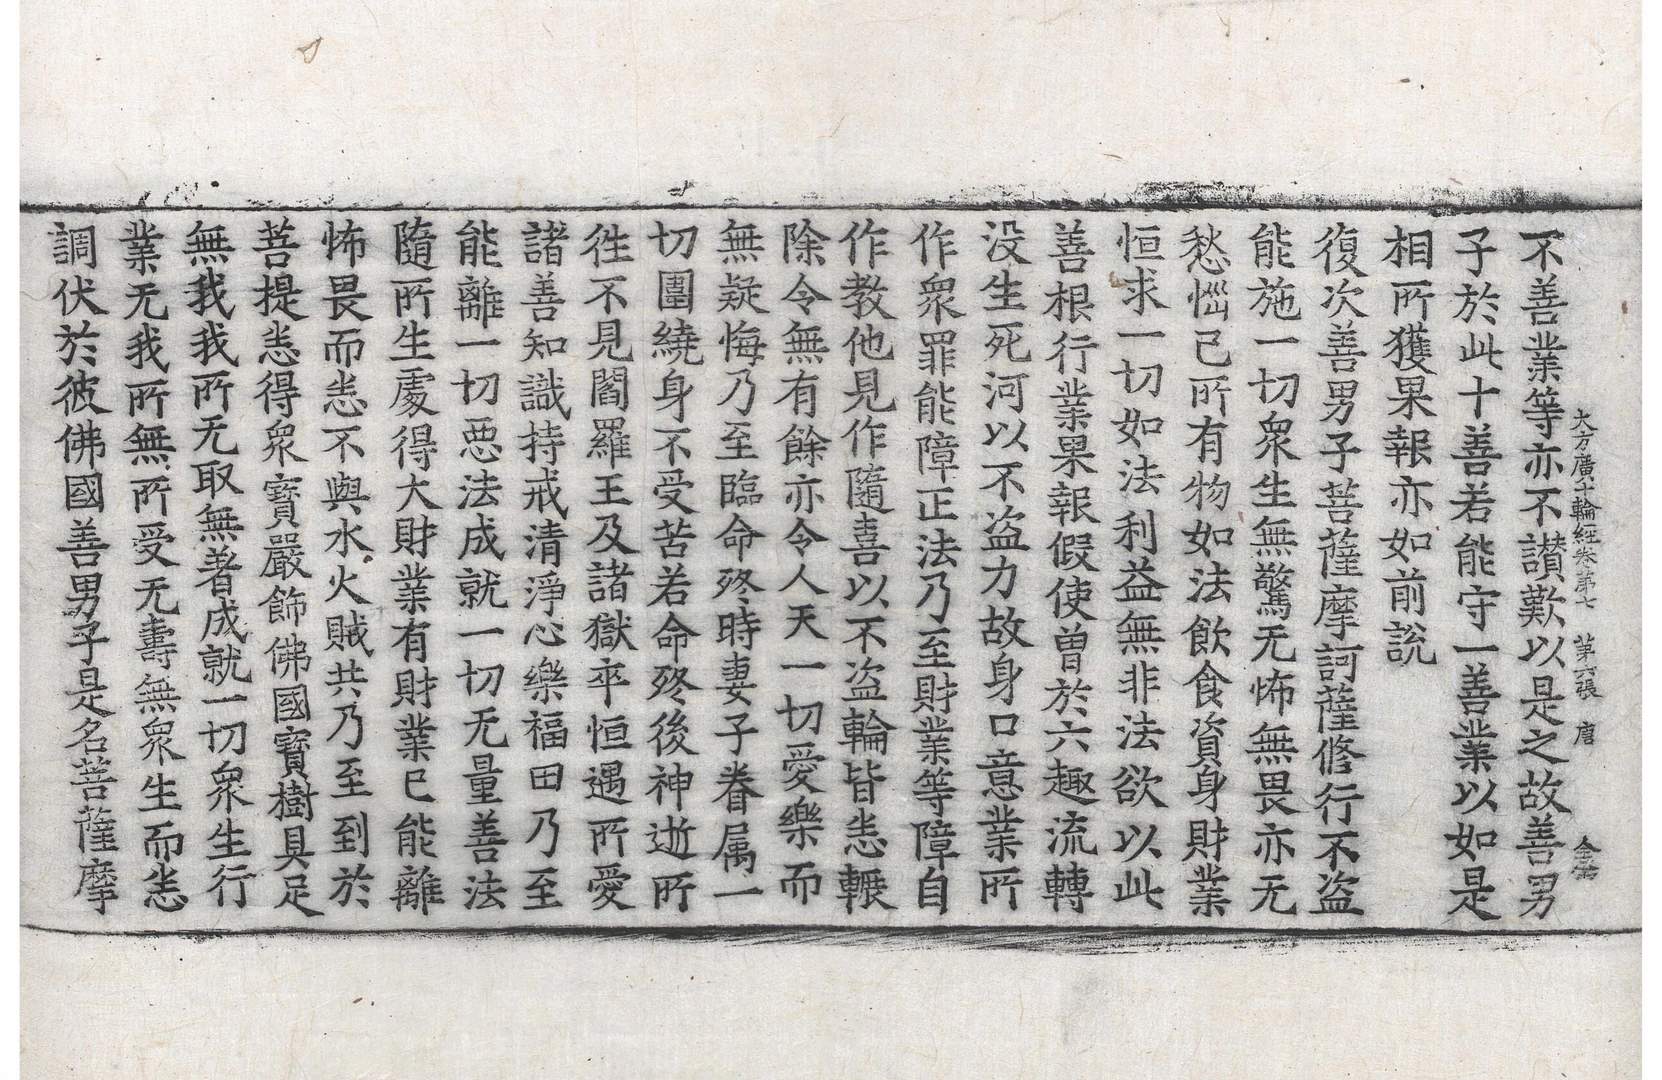 大方廣十輪經卷第七　第六張　唐
不善業等亦不讃歎以是之故善男
子於此十善若能守一善業以如是
相所獲果報亦如前說
復次善男子菩薩摩訶薩修行不盗
能施一切衆生無驚无怖無畏亦无
愁惱已所有物如法飲食資身財業
恒求一切如法利益無非法欲以此
善根行業果報假使曾於六趣流轉
没生死河以不盗力故身口意業所
作衆罪能障正法乃至財業等障自
作教他見作隨喜以不盗輪皆悉輾
除令無有餘亦令人天一切愛樂而
無疑悔乃至臨命終時妻子眷属一
切圍繞身不受苦若命終後神逝所
徃不見閻羅王及諸獄卒恒遇所愛
諸善知識持戒清淨心樂福田乃至
能離一切惡法成就一切无量善法
隨所生處得大財業有財業已能離
怖畏而悉不與水火賊共乃至到於
菩提悉得衆寶嚴飾佛國寶樹具足
無我我所无取無著成就一切衆生行
業无我所無所受无壽無衆生而悉
調伏於彼佛國善男子是名菩薩摩